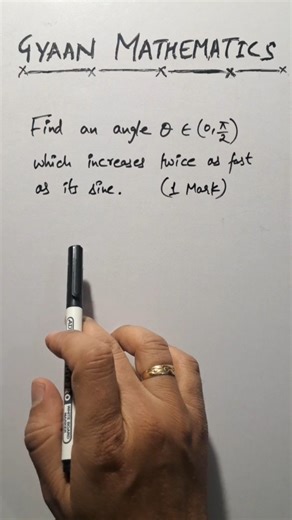 GYAAN MATHEMATICS
Find an angle θ ∈ (0, π/2)
which increases twice as fast
as its sine. (1 Mark)